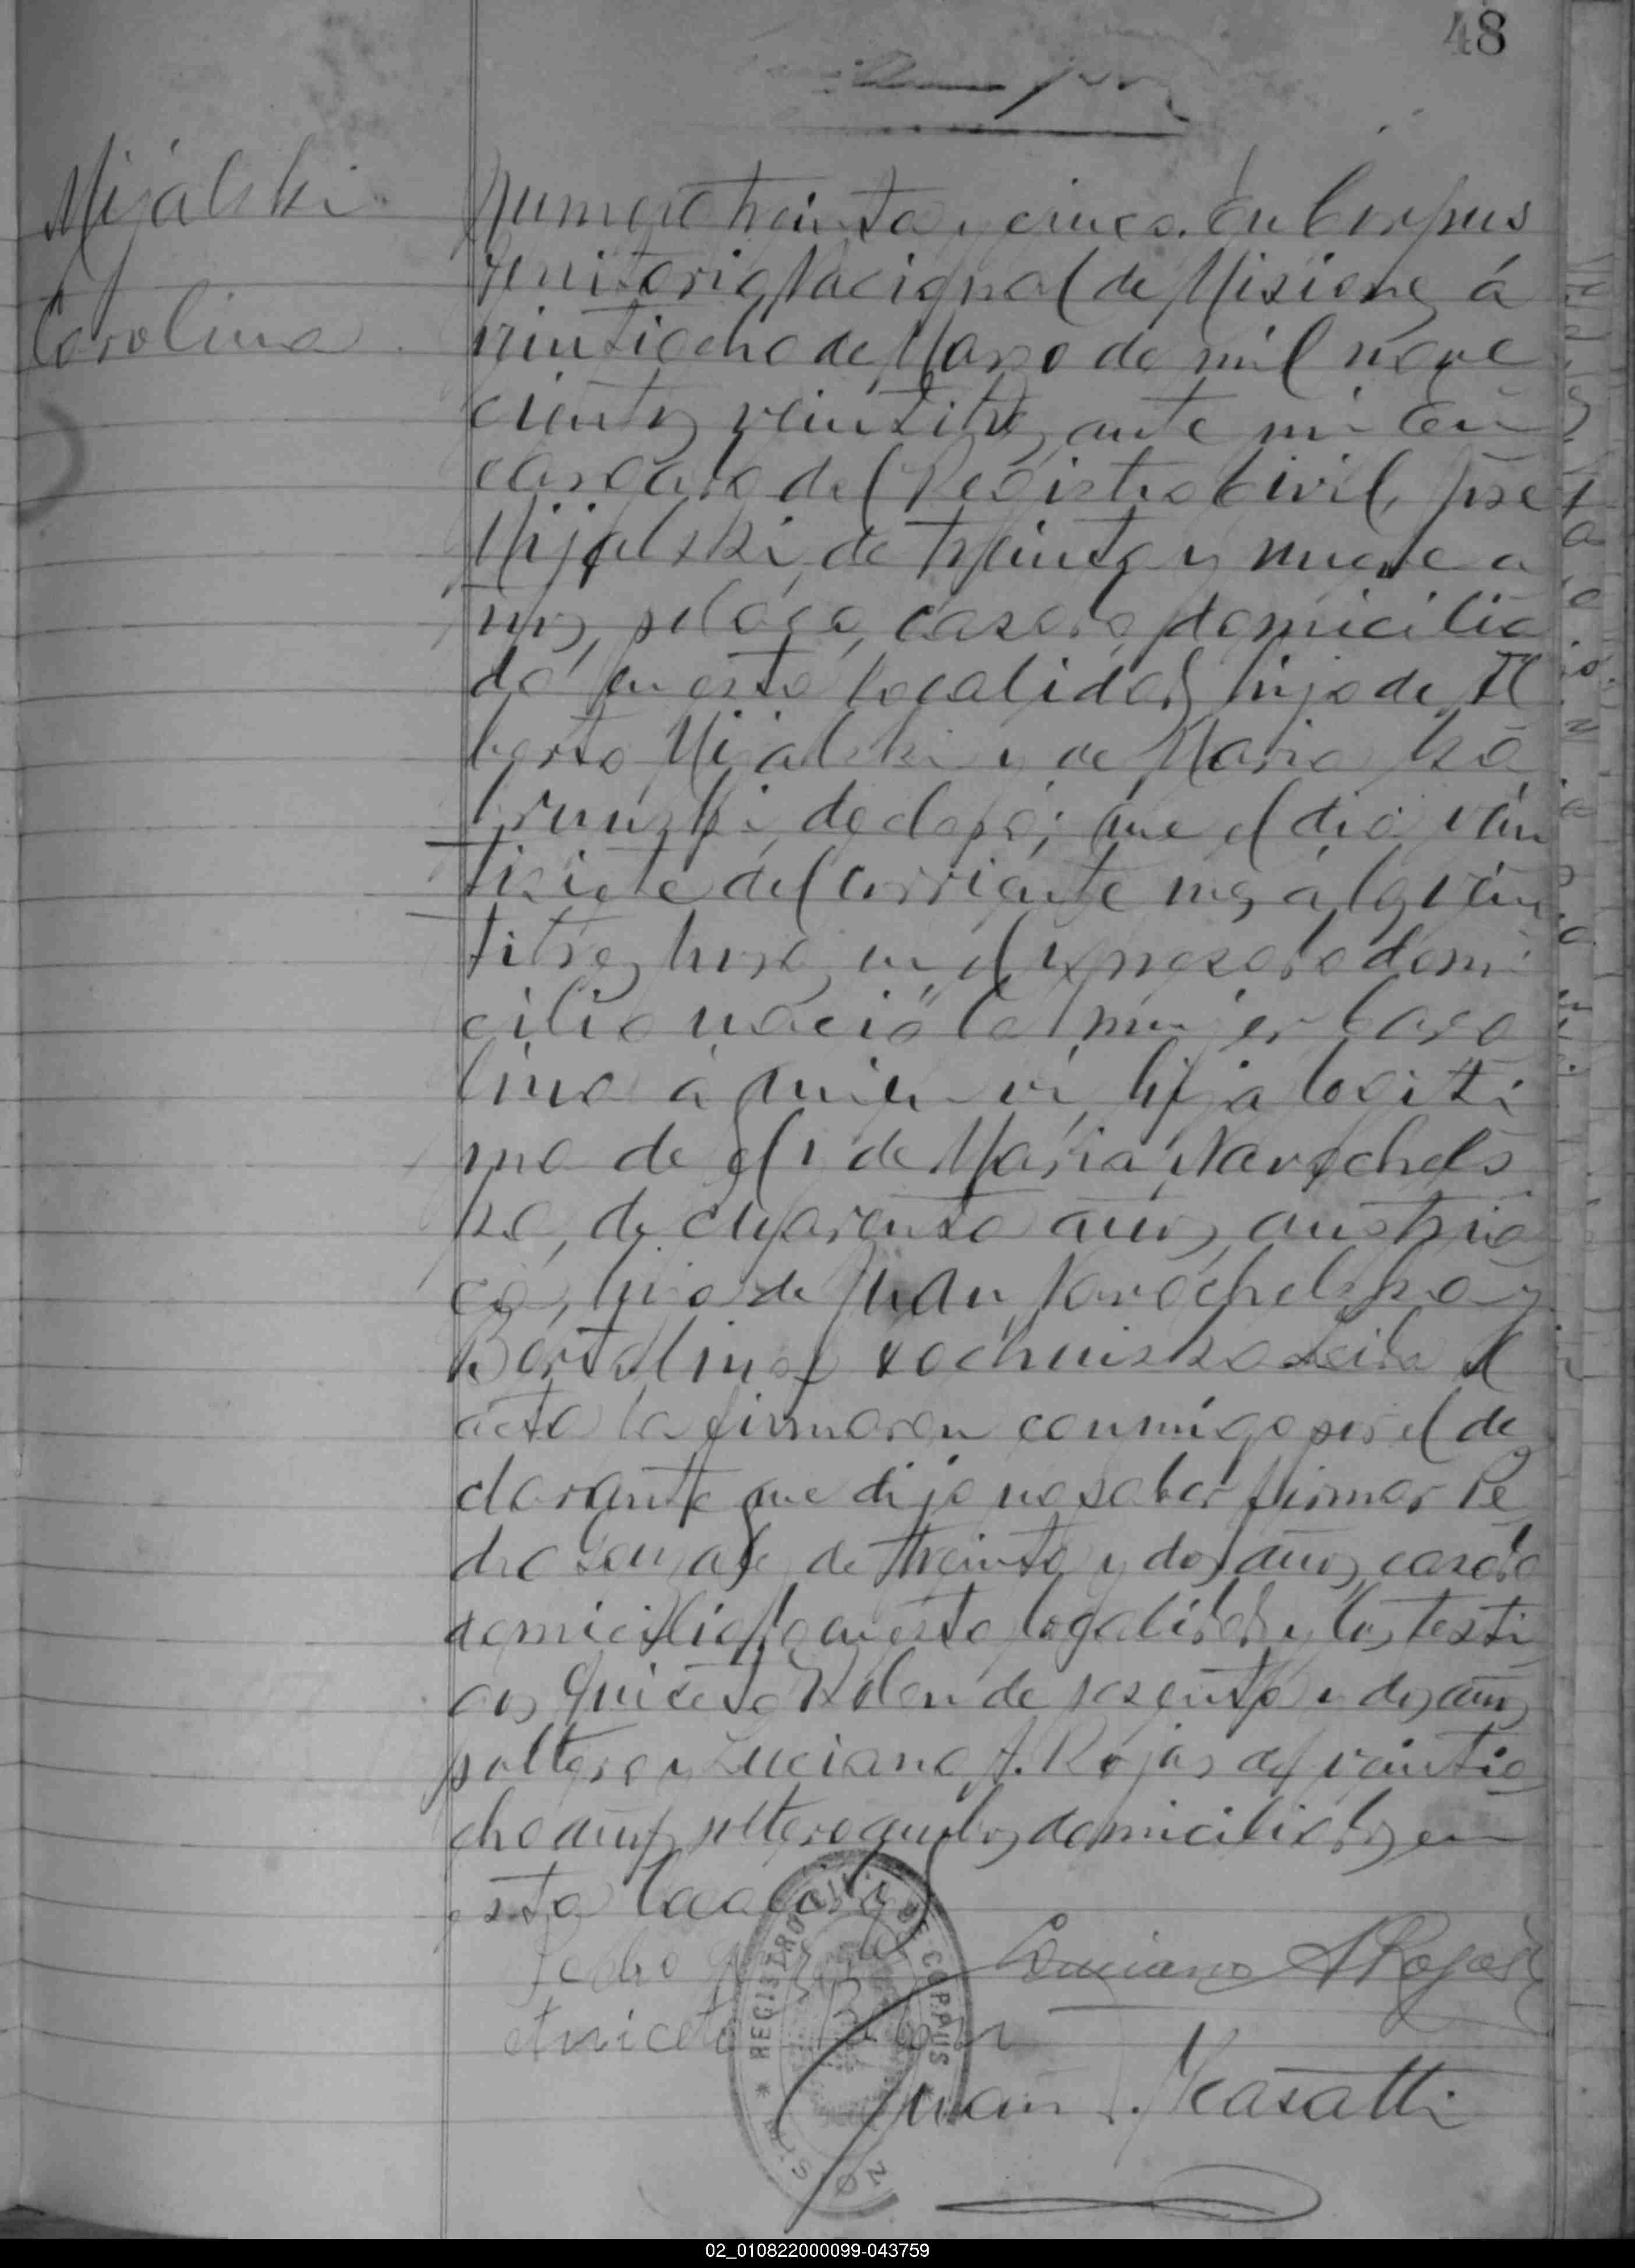 48
Mijalski
Carolina
Numero treinta y cinco. En Corpus
Territorio Nacional de Misiones á
veintiocho de Marzo de mil nove
cientos veintitres, ante mi En
cargado del Registro Civil, José
Mijalski, de treinta y nueve a
ños, polaco, casado, domicilia
do en esta localidad, hijo de Al
berto Mijalski y de Maria
declaró; que el dia vein
tisiete del corriente mes á las vein
titres horas en el expresado domi
cilio nació la mujer Caro
lina á quien vi, hija legiti
ma de el y de Maria Narochels
ka, de cuarenta años, austria
ca, hija de Juan Narochelska y
Bertolina Leida el
acta la firmaron conmigo por el de
clarante que dijo no saber firmar Pe
dro Gonzalez de treinta y dos años, casado
domiciliado en esta localidad y los testi
gos Aniceto Rolon de sesenta y dos años
soltero y Luciano A. Rojas de veintio
cho años, soltero ambos domiciliados en
esta localidad
Pedro
Luciano A Rojas
Aniceto Rolon
Juan Casatti
REGISTRO CIVIL DE CORPUS
02_010822000099-043759